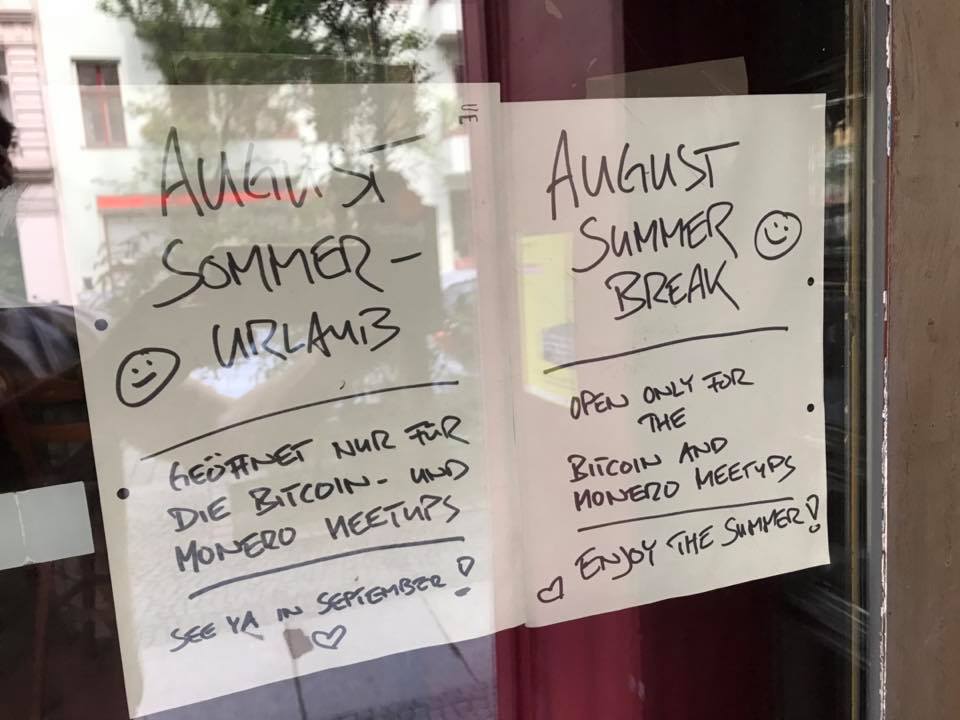 AUGUST
SOMMER-
URLAUB
GEÖFFNET NUR FÜR
DIE BITCOIN- UND
MONERO MEETUPS
SEE YA IN SEPTEMBER!
AUGUST
SUMMER
BREAK
OPEN ONLY FOR
THE
BITCOIN AND
MONERO MEETUPS
ENJOY THE SUMMER!